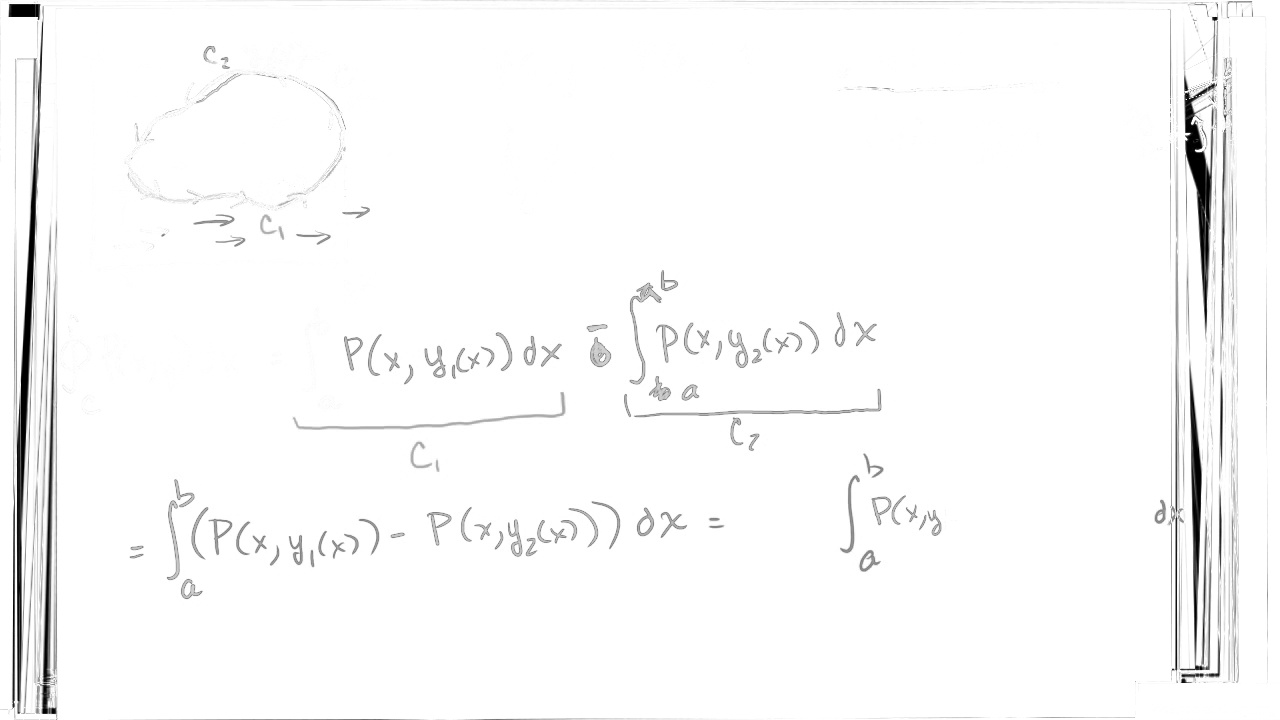 C₂
C₁
P(x, y₁(x)) dx - ∫ₐᵇ P(x, y₂(x)) dx
C₁ C₂
= ∫ₐᵇ (P(x, y₁(x)) - P(x, y₂(x))) dx = ∫ₐᵇ P(x, y dx